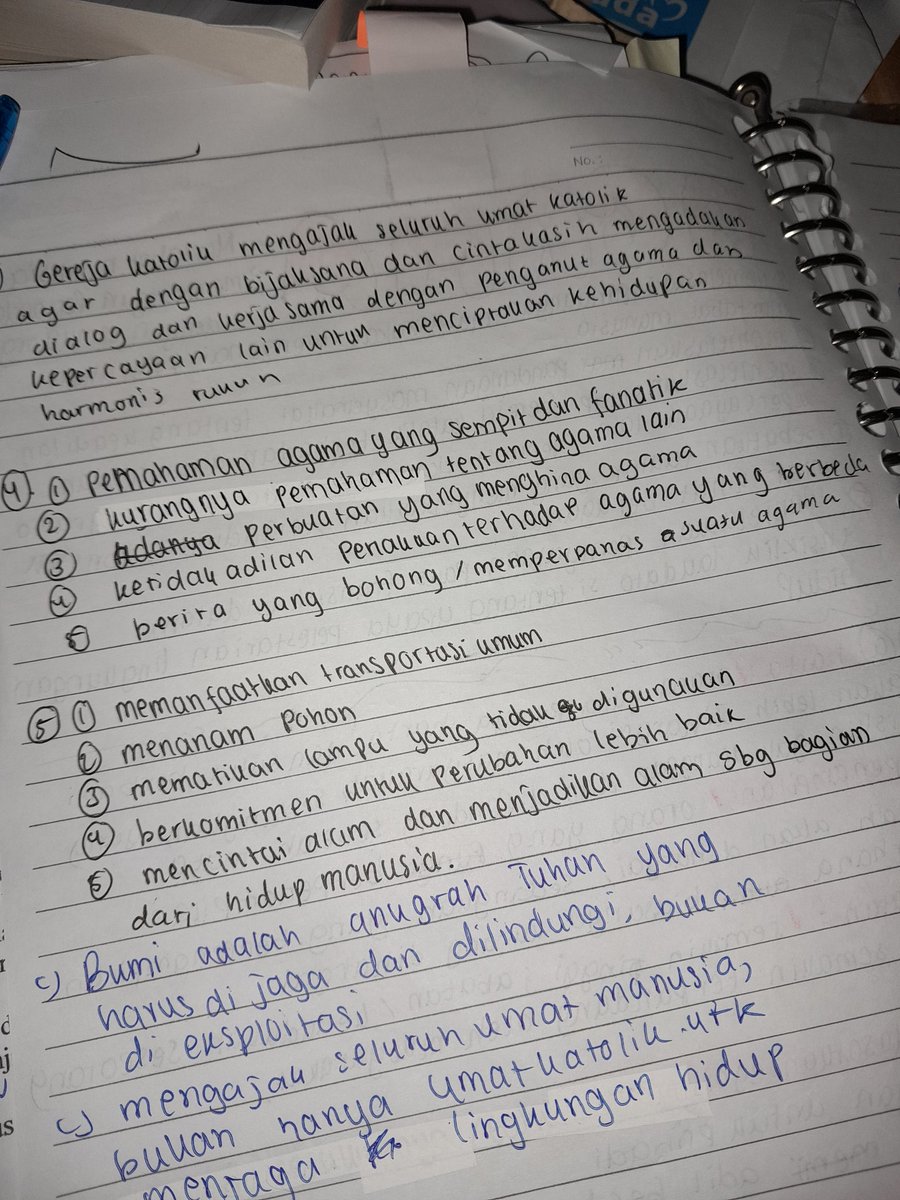 No. :
Gereja katolik mengajak seluruh umat katolik
agar dengan bijaksana dan cintakasih mengadakan
dialog dan kerja sama dengan penganut agama dan
kepercayaan lain untuk menciptakan kehidupan
harmonis rukun
4. ① pemahaman agama yang sempit dan fanatik
② kurangnya pemahaman tentang agama lain
③ adanya perbuatan yang menghina agama
④ ketidakadilan penakuan terhadap agama yang berbeda
⑤ berita yang bohong / memperpanas suatu agama
⑤ ① memanfaatkan transportasi umum
② menanam pohon
③ mematikan lampu yang tidak digunakan
④ berkomitmen untuk perubahan lebih baik
⑤ mencintai alam dan menjadikan alam sbg bagian
dari hidup manusia.
c) Bumi adalah anugrah Tuhan yang
harus di jaga dan dilindungi, bukan
di eksploitasi
c) mengajak seluruh umat manusia,
bukan hanya umat katolik utk
menjaga lingkungan hidup